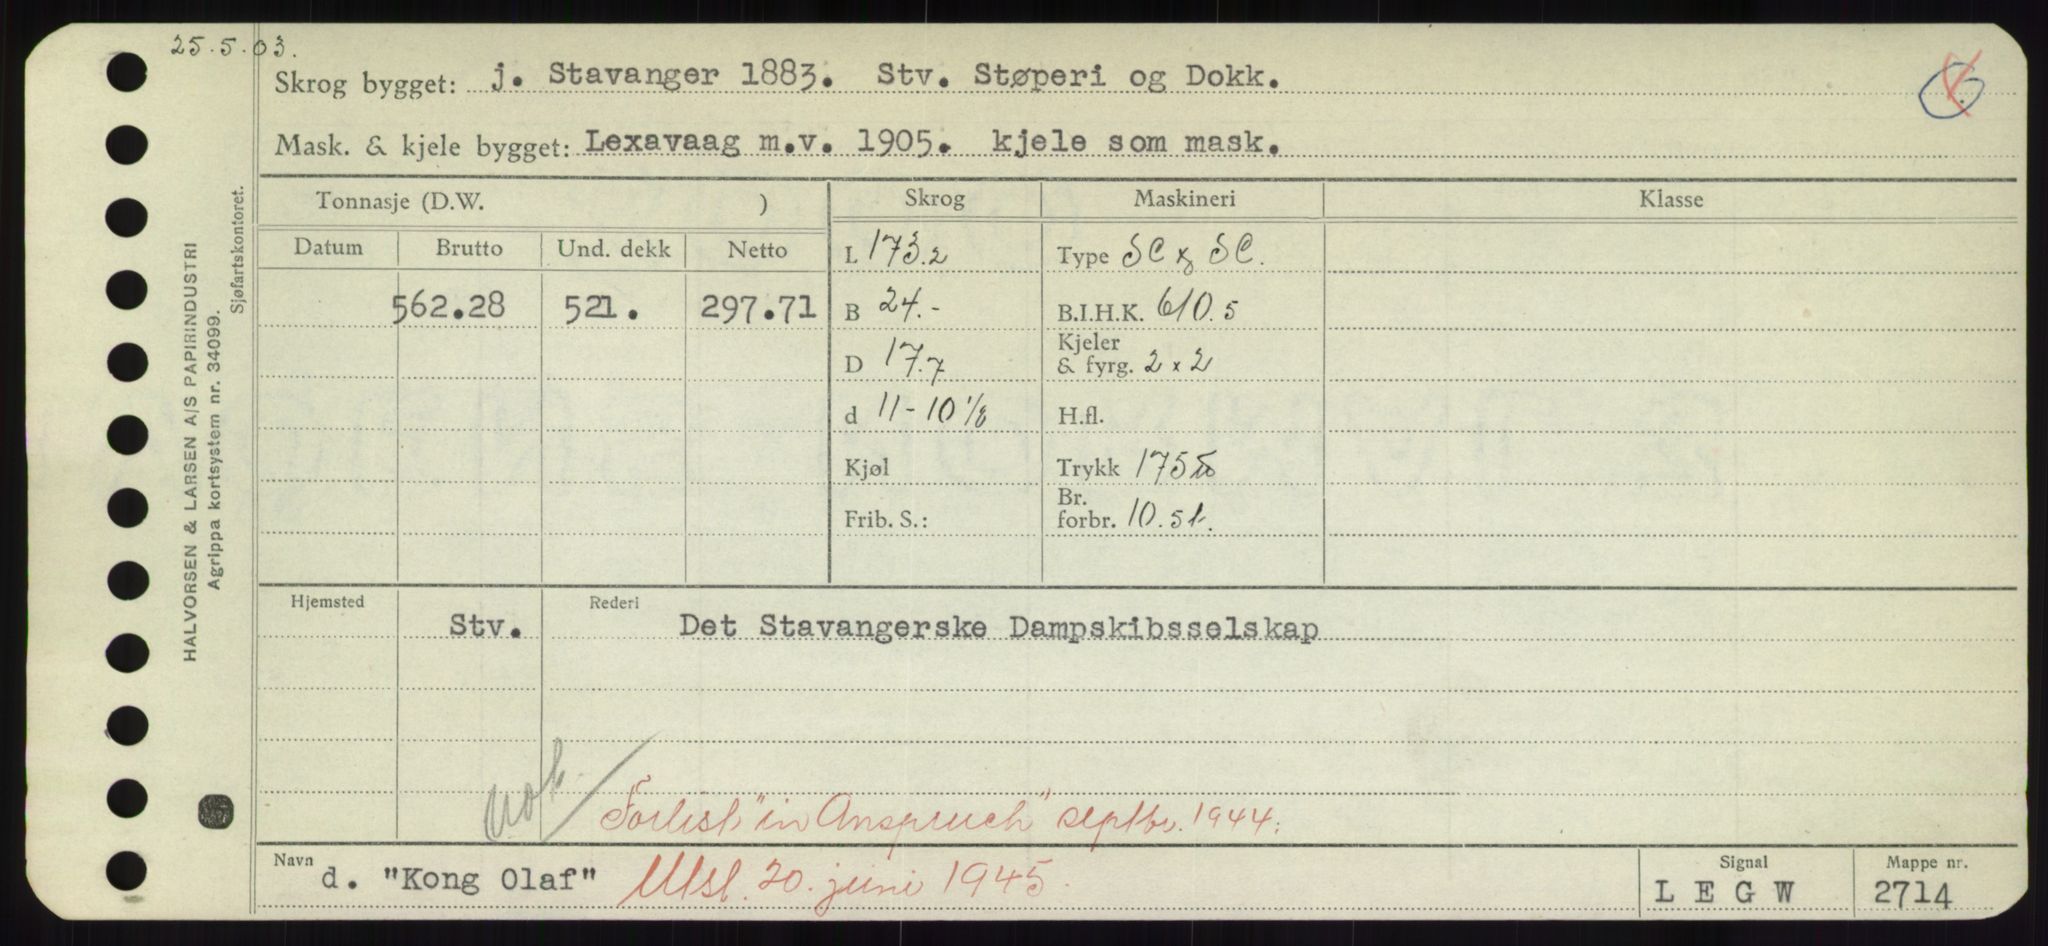 25.5.03.
Skrog bygget: j. Stavanger 1883. Stv. Støperi og Dokk.
Mask. & kjele bygget: Lexavaag m.v. 1905. kjele som mask.
Tonnasje (D.W. ) Skrog Maskineri Klasse
Datum Brutto Und. dekk Netto
L 173.2 Type SC & SC.
562.28 521. 297.71 B 24.- B.I.H.K. 610.5
D 17.7 Kjeler & fyrg. 2 x 2
d 11-10 1/8 H.fl.
Kjøl Trykk 175
Frib. S.: Br. forbr. 10.5t.
Hjemsted Rederi
Stv. Det Stavangerske Dampskibsselskap
Forlist "in Anspruch" septbr. 1944.
Navn d. "Kong Olaf" Utsl. 20. juni 1945.
Signal Mappe nr.
L E G W 2714
HALVORSEN & LARSEN A/S PAPIRINDUSTRI
Agrippa kortsystem nr. 34099.
Sjøfartskontoret.